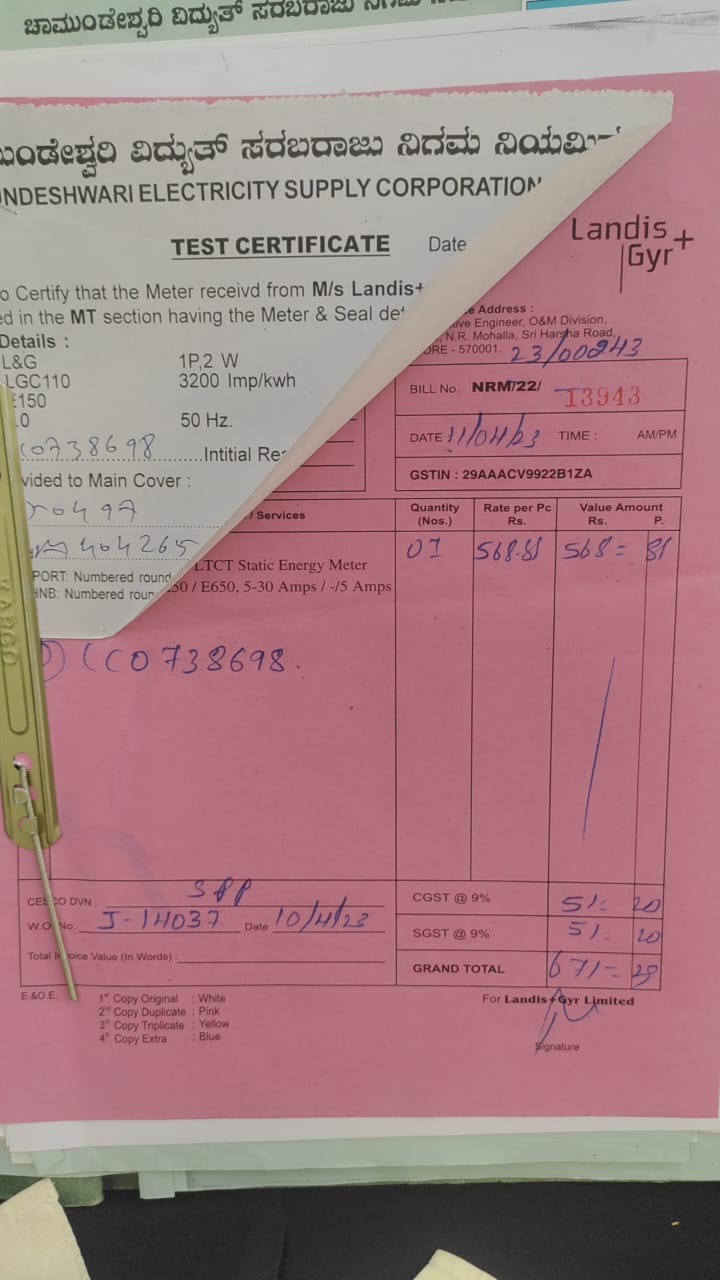 ಚಾಮುಂಡೇಶ್ವರಿ ವಿದ್ಯುತ್ ಸರಬರಾಜು
ಮುಂಡೇಶ್ವರಿ ವಿದ್ಯುತ್ ಸರಬರಾಜು ನಿಗಮ ನಿಯಮಿ
NDESHWARI ELECTRICITY SUPPLY CORPORATION
TEST CERTIFICATE Date
o Certify that the Meter receivd from M/s Landis+
ed in the MT section having the Meter & Seal det
Details :
L&G 1P,2 W
LGC110 3200 Imp/kwh
E150
.0 50 Hz.
0738698 Intitial Re
vided to Main Cover :
0497
404265
PORT: Numbered round
HNB: Numbered roun
Landis+
Gyr
e Address :
ive Engineer, O&M Division,
N.R. Mohalla, Sri Harsha Road,
ORE - 570001. 23/00943
BILL No. NRM/22/ 13943
DATE 11/04/23 TIME : AM/PM
GSTIN : 29AAACV9922B1ZA
/ Services Quantity (Nos.) Rate per Pc Rs. Value Amount Rs. P.
LTCT Static Energy Meter 01 568.81 568= 81
50 / E650, 5-30 Amps / -/5 Amps
CC0738698.
CESCO DVN : SPP
W.O. No. J-14037 Date 10/4/23
Total Invoice Value (In Words) :
CGST @ 9% 51= 20
SGST @ 9% 51= 20
GRAND TOTAL 671= 29
E.&O.E.
1st Copy Original : White
2nd Copy Duplicate : Pink
3rd Copy Triplicate : Yellow
4th Copy Extra : Blue
For Landis+Gyr Limited
Signature
KANGO